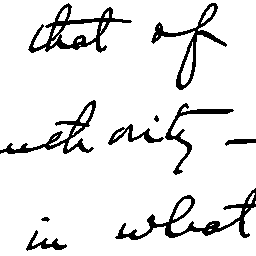 that of
uthority –
in what